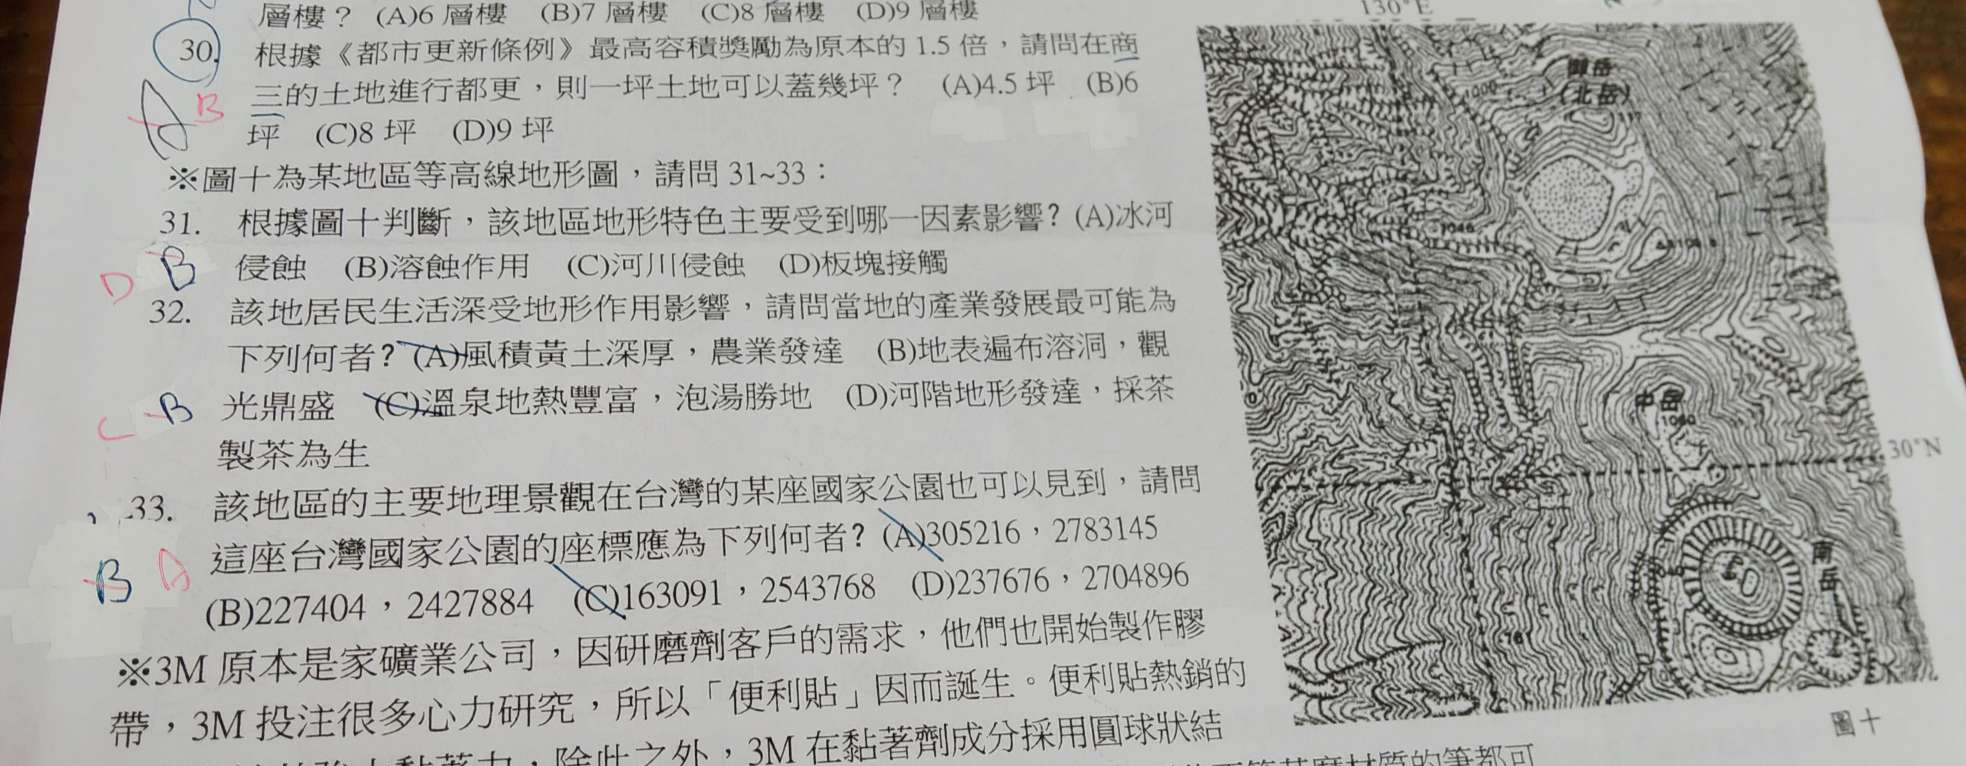 層樓？ (A)6 層樓 (B)7 層樓 (C)8 層樓 (D)9 層樓
30. 根據《都市更新條例》最高容積獎勵為原本的 1.5 倍，請問在商
三的土地進行都更，則一坪土地可以蓋幾坪？ (A)4.5 坪 (B)6
坪 (C)8 坪 (D)9 坪
A B
※圖十為某地區等高線地形圖，請問 31~33：
31. 根據圖十判斷，該地區地形特色主要受到哪一因素影響？(A)冰河
侵蝕 (B)溶蝕作用 (C)河川侵蝕 (D)板塊接觸
D B
32. 該地居民生活深受地形作用影響，請問當地的產業發展最可能為
下列何者？(A)風積黃土深厚，農業發達 (B)地表遍布溶洞，觀
光鼎盛 (C)溫泉地熱豐富，泡湯勝地 (D)河階地形發達，採茶
製茶為生
C B
33. 該地區的主要地理景觀在台灣的某座國家公園也可以見到，請問
這座台灣國家公園的座標應為下列何者？(A)305216，2783145
(B)227404，2427884 (C)163091，2543768 (D)237676，2704896
B A
※3M 原本是家礦業公司，因研磨劑客戶的需求，他們也開始製作膠
帶，3M 投注很多心力研究，所以「便利貼」因而誕生。便利貼熱銷的
黏著力，除此之外，3M 在黏著劑成分採用圓球狀結
材質的筆都可
130°E
御岳
(北岳)
1117
1000
1046
中岳
1060
30°N
南岳
761
圖十